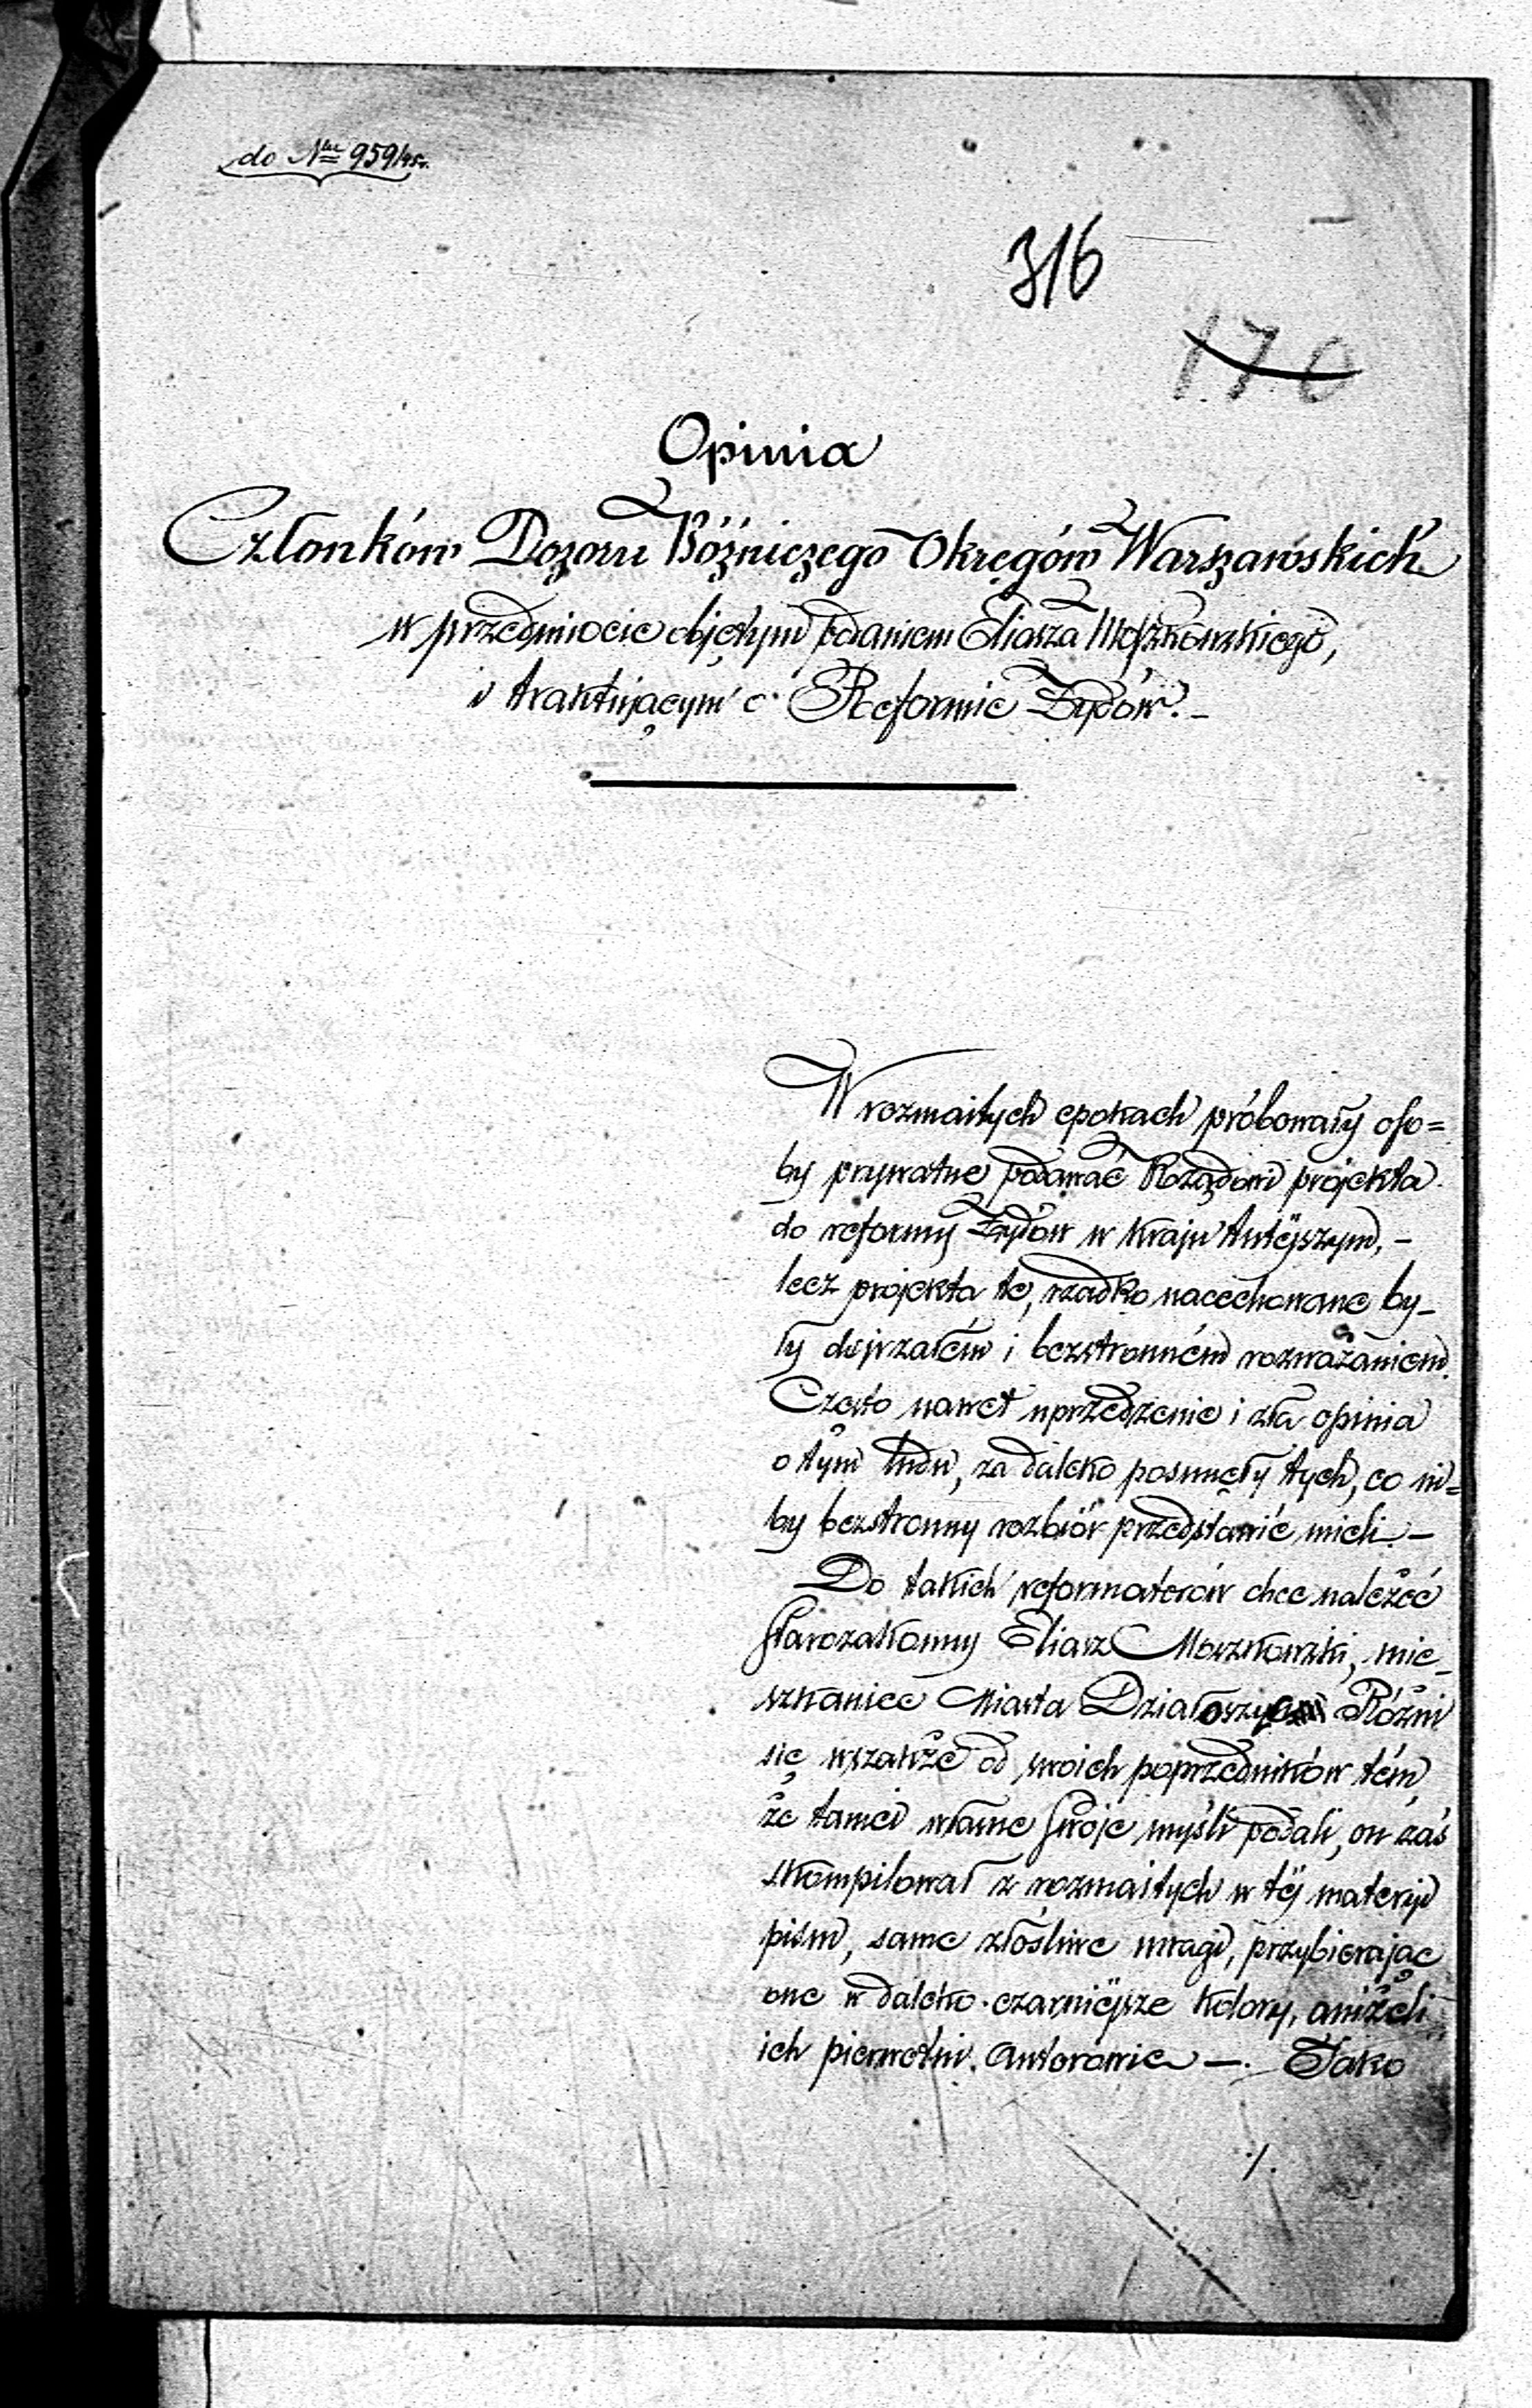 do Nru 959/45r.
316
170
Opinia
Członków Dozoru Bóżniczego Okręgów Warszawskich
w przedmiocie objętym podaniem Eliasza Moszkowskiego,
i traktującym o Reformie Żydów. –
W rozmaitych epokach próbowały oso=
by prywatne podawać Rządowi projekta
do reformy Żydów w kraju tutéjszym, –
lecz projekta te, rzadko nacechowane by–
ły dojrzałém i bezstronném rozważaniem.
Często nawet uprzedzenie i zła opinia
o tym ludu, za daleko posunęły tych, co ni=
by bezstronny rozbiór przedstawić mieli. –
Do takich reformatorów chce należéć
Starozakonny Eliasz Moszkowski, mie–
szkaniec Miasta Działoszyc Różni
się wszakże od swoich poprzedników tém,
że tamci własne swoje myśli podali, on zaś
skompilował z rozmaitych w téj materyi
pism, same złośliwe uwagi, przybierając
one w daleko czarniéjsze kolory, aniżeli
ich pierwotni Autorowie –. Jako
./.